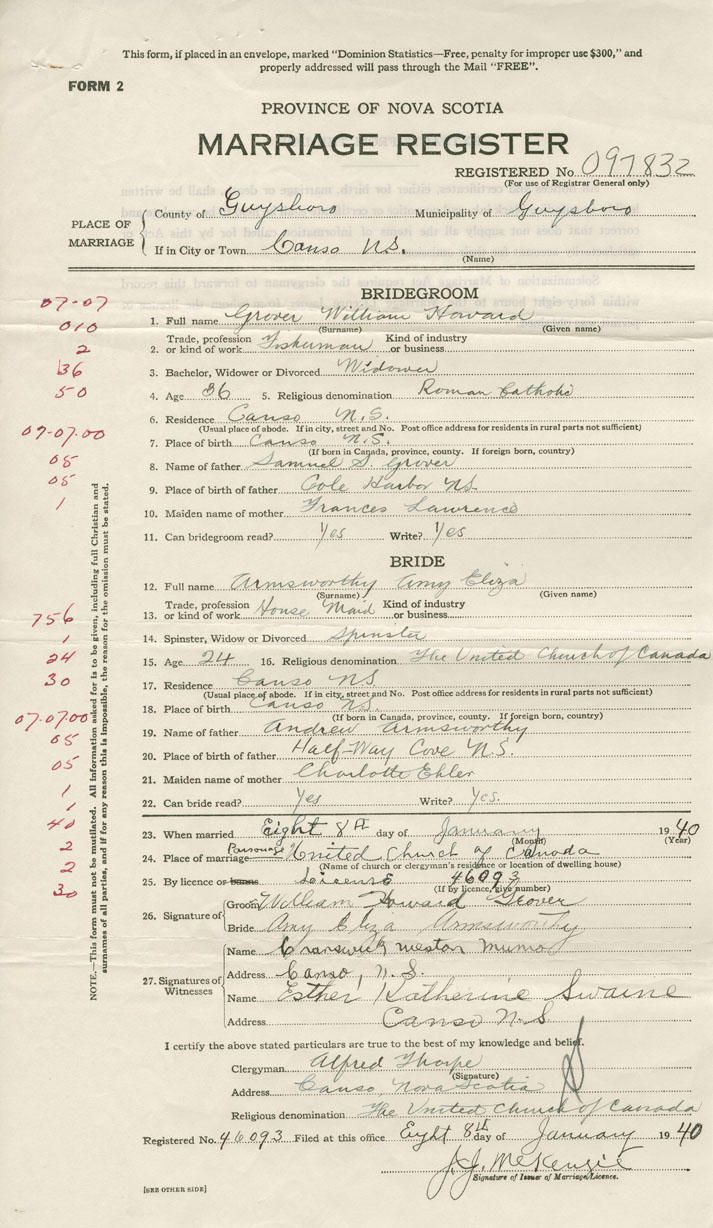 This form, if placed in an envelope, marked "Dominion Statistics—Free, penalty for improper use $300," and
properly addressed will pass through the Mail "FREE".
FORM 2
PROVINCE OF NOVA SCOTIA
MARRIAGE REGISTER
REGISTERED No. 097832
(For use of Registrar General only)
PLACE OF MARRIAGE
County of Guysboro Municipality of Guysboro
If in City or Town Canso N.S.
(Name)
07-07
010
2
36
50
07-07.00
05
05
1
756
1
24
30
07.07.00
05
05
1
1
40
2
2
30
NOTE.—This form must not be mutilated. All information asked for is to be given, including full Christian and
surnames of all parties, and if for any reason this is impossible, the reason for the omission must be stated.
BRIDEGROOM
1. Full name Grover William Howard
(Surname) (Given name)
2. Trade, profession or kind of work Fisherman Kind of industry or business
3. Bachelor, Widower or Divorced Widower
4. Age 36 5. Religious denomination Roman Catholic
6. Residence Canso N.S.
(Usual place of abode. If in city, street and No. Post office address for residents in rural parts not sufficient)
7. Place of birth Canso N.S.
(If born in Canada, province, county. If foreign born, country)
8. Name of father Samuel S. Grover
9. Place of birth of father Cole Harbor N.S.
10. Maiden name of mother Frances Lawrence
11. Can bridegroom read? Yes Write? Yes
BRIDE
12. Full name Armsworthy Amy Eliza
(Surname) (Given name)
13. Trade, profession or kind of work House Maid Kind of industry or business
14. Spinster, Widow or Divorced Spinster
15. Age 24 16. Religious denomination The United Church of Canada
17. Residence Canso N.S.
(Usual place of abode. If in city, street and No. Post office address for residents in rural parts not sufficient)
18. Place of birth Canso N.S.
(If born in Canada, province, county. If foreign born, country)
19. Name of father Andrew Armsworthy
20. Place of birth of father Half-Way Cove N.S.
21. Maiden name of mother Charlotte Ehler
22. Can bride read? Yes Write? Yes.
23. When married Eight 8th day of January 1940
(Month) (Year)
24. Place of marriage Parsonage United Church of Canada
(Name of church or clergyman's residence or location of dwelling house)
25. By licence or banns License 46093
(If by licence, give number)
26. Signature of
Groom William Howard Grover
Bride Amy Eliza Armsworthy
27. Signatures of Witnesses
Name Weston Munro
Address Canso, N.S.
Name Esther Katherine Swaine
Address Canso N.S.
I certify the above stated particulars are true to the best of my knowledge and belief.
Clergyman Alfred Thorpe
(Signature)
Address Canso, Nova Scotia
Religious denomination The United Church of Canada
Registered No. 46093 Filed at this office Eight 8th day of January 1940
J. J. McKenzie
Signature of Issuer of Marriage Licence.
[SEE OTHER SIDE]